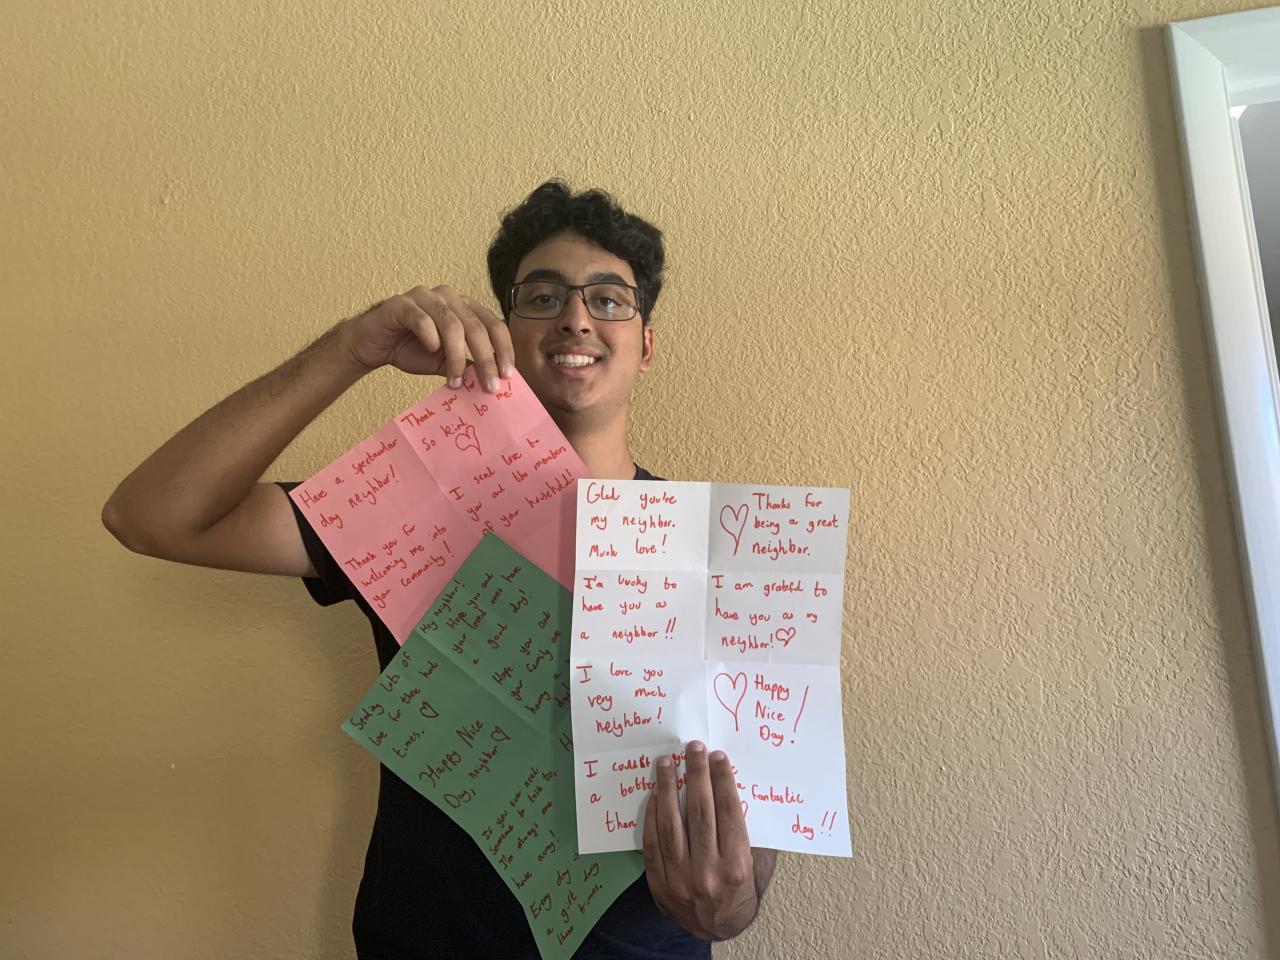 Thank you for
so kind to me!
Have a spectacular
day neighbor!
I send love to
you and the members
of your household!!
Thank you for
welcoming me into
your community!
Hey neighbor!
Hope you and
your loved ones have
a good day!
Sending lots of
love for these hard
times.
Hope you and
your family are
having a
day
Happy Nice
Day, neighbor
H
If you ever need
someone to talk to,
I'm always one
away!
Every day is
a gift during
these times.
Glad you're
my neighbor.
Much love!
Thanks for
being a great
neighbor.
I'm lucky to
have you as
a neighbor!!
I am grateful to
have you as my
neighbor!
I love you
very much
neighbor!
Happy
Nice
Day!
I couldn't
a better
than
a fantastic
day!!